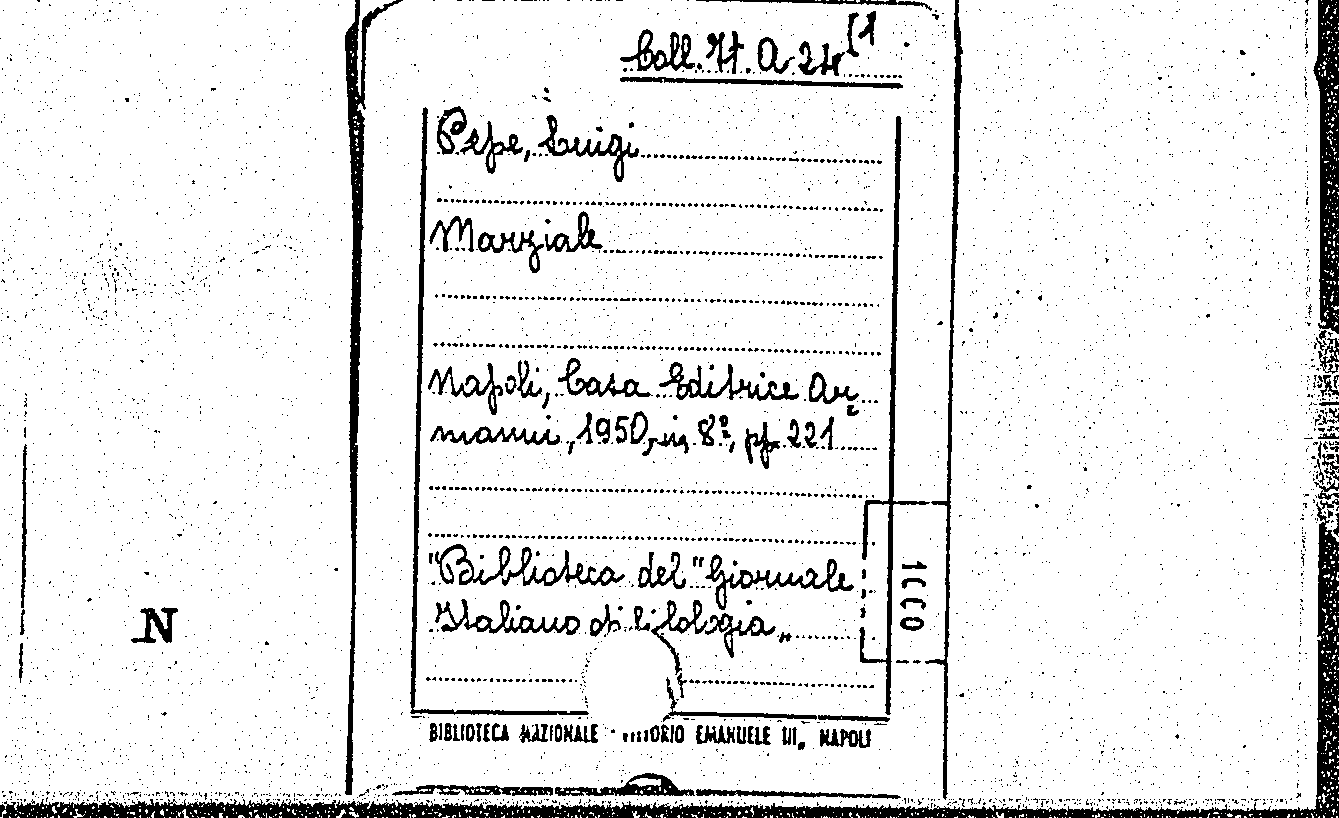 Coll. It. A 24 (1
Pepe, Luigi
Marziale
Napoli, Casa Editrice Ar=
manni, 1950, in 8º, pp. 221
"Biblioteca del "Giornale
Italiano di Filologia„
ICCU
N
BIBLIOTECA NAZIONALE VITTORIO EMANUELE III„ NAPOLI